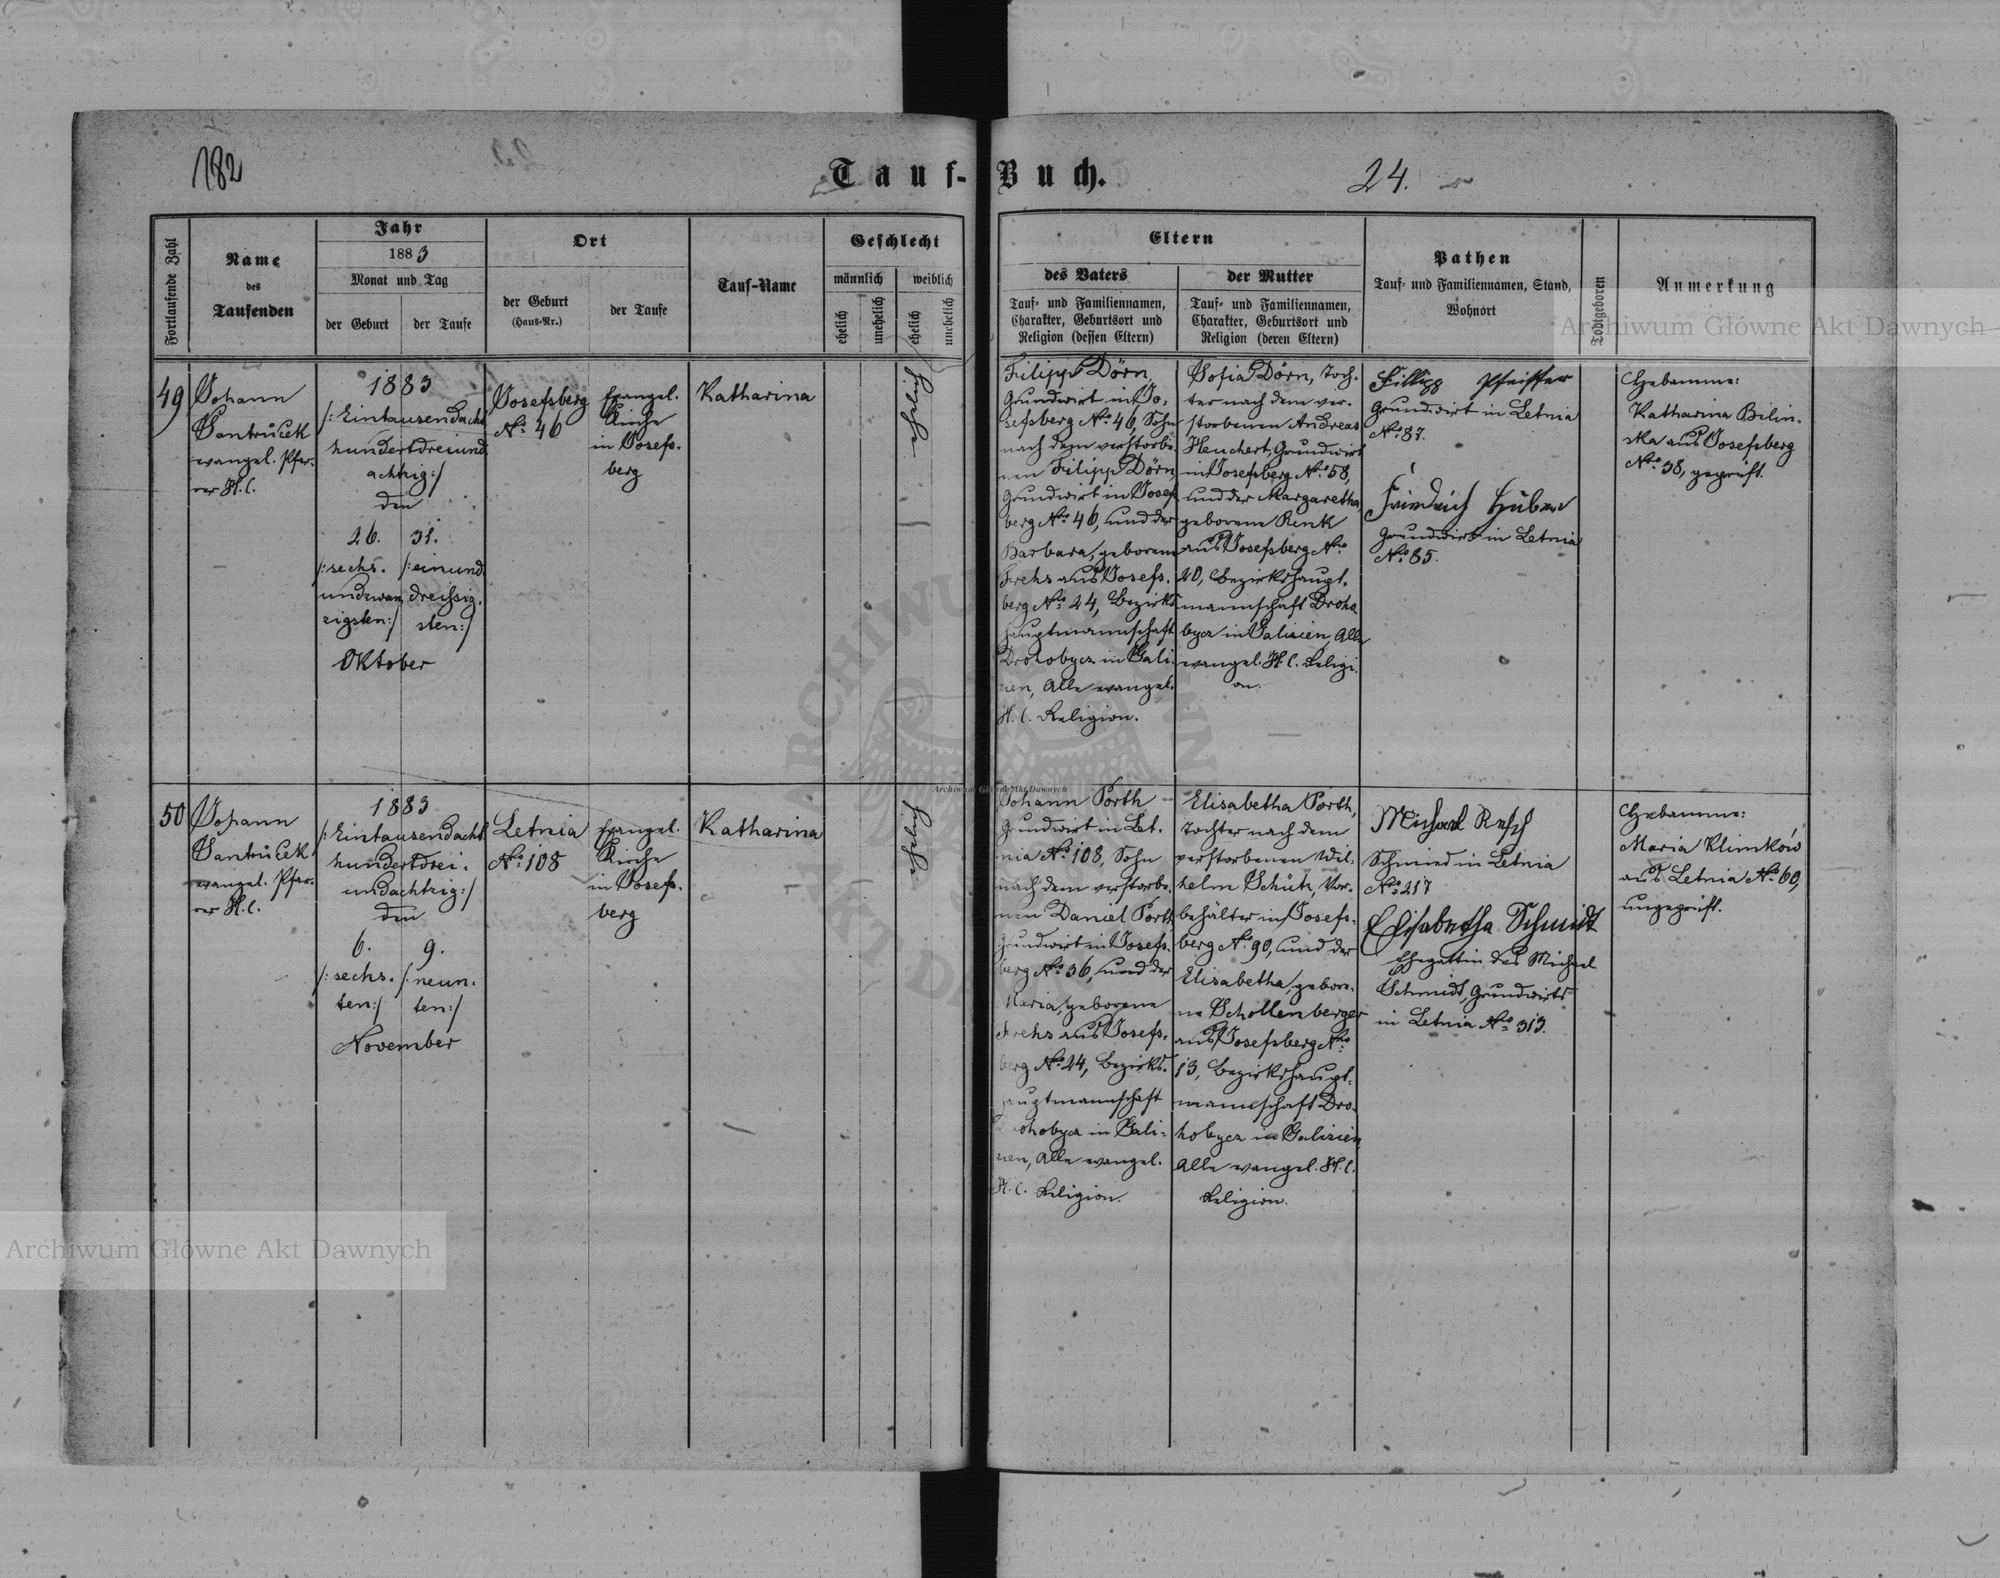 182
Tauf-Buch.
24.
Fortlaufende Zahl
Name
des
Taufenden
Jahr
1883
Monat und Tag
der Geburt
der Taufe
Ort
der Geburt
(Haus-Nr.)
der Taufe
Tauf-Name
Geschlecht
männlich
weiblich
ehelich
unehelich
ehelich
unehelich
Eltern
des Vaters
Tauf- und Familiennamen,
Charakter, Geburtsort und
Religion (dessen Eltern)
der Mutter
Tauf- und Familiennamen,
Charakter, Geburtsort und
Religion (deren Eltern)
Pathen
Tauf- und Familiennamen, Stand,
Wohnort
Todtgeboren
Anmerkung
49
Johann
Jantůček
evangel. Pfar-
rer H.C.
1883
/:Eintausendacht
hundertdreiund
achtzig:/
den
26.
/:sechs.
undzwan
zigsten:/
31.
/:einund
dreissig.
sten:/
Oktober
Josefsberg
No. 46
Evangel.
Kirche
in Josefs-
berg
Katharina
Filipp Dörn,
Grundwirt in Jo-
sefsberg No. 46, Sohn
nach dem verstorbe-
nen Filipp Dörn,
Grundwirt in Josef
berg No. 46, und der
Barbara, geborene
Frehs aus Josefs-
berg No. 24, Bezirks
hauptmannschaft
Drohobycz in Gali-
zien, Alle evangel.
H.C. Religion.
Sofia Dörn, Toch-
ter nach dem ver-
storbenen Andreas
Heuchert, Grundwirt
in Josefsberg No. 58,
und der Margaretha,
geborene Renk
aus Josefsberg No.
20, Bezirkshaupt-
mannschaft Droho
bycz in Galizien, Alle
evangel. H.C. Religi-
on.
Fillipp Pfeiffer
Grundwirt in Letnia
No. 87.
Friedrich Huber
Grundwirt in Letnia
No. 85.
Hebamme:
Katharina Bilin-
ska aus Josefsberg
No. 38, geprüft.
50
Johann
Jantůček
evangel. Pfar-
rer H.C.
1883
/:Eintausendacht
hundertdrei-
undachtzig:/
den
6.
/:sechs.
ten:/
9.
/:neun.
ten:/
November
Letnia
No. 108
Evangel.
Kirche
in Josefs-
berg
Katharina
Johann Porth
Grundwirt in Let-
nia No. 108, Sohn
nach dem verstorbe-
nen Daniel Porth
Grundwirt in Josefs-
berg No. 36, und der
Maria, geborene
Frehs aus Josefs-
berg No. 24, Bezirks-
hauptmannschaft
Drohobycz in Gali-
zien, Alle evangel.
H.C. Religion.
Elisabetha Porth,
Tochter nach dem
verstorbenen Wil-
helm Schütz, Vor-
behälter in Josefs-
berg No. 90, und der
Elisabetha, gebore-
ne Schollenberger
aus Josefsberg No.
13, Bezirkshaupt-
mannschaft Dro-
hobycz in Galizien,
Alle evangel. H.C.
Religion.
Michael Resch
Schmied in Letnia
No. 217
Elisabetha Schmidt
Ehegattin des Michael
Schmidt, Grundwirts
in Letnia No. 313.
Hebamme:
Maria Klimków
aus Letnia No. 60,
ungeprüft.
Archiwum Główne Akt Dawnych
Archiwum Główne Akt Dawnych
Archiwum Główne Akt Dawnych